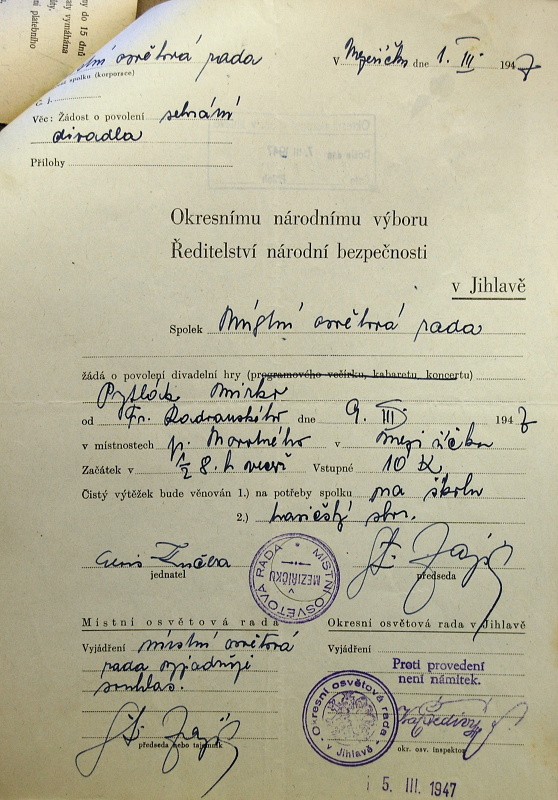 ny do 15 dnů
aty vymáhána
ní platebního
místní osvětová rada
V Meziříčku dne 1. III. 1947
spolku (korporace)
Č. j.
Věc: Žádost o povolení sehrání
divadla
Přílohy
7. III 1947
Okresnímu národnímu výboru
Ředitelství národní bezpečnosti
v Jihlavě
Spolek Místní osvětová rada
žádá o povolení divadelní hry (programového večírku, kabaretu, koncertu)
Pytlák
od Fr. dne 9. III 1947
v místnostech p. Novotného v Meziříčku
Začátek v 1/2 8. h več Vstupné 10 K
Čistý výtěžek bude věnován 1.) na potřeby spolku na školu
2.)
jednatel
předseda
MÍSTNÍ OSVĚTOVÁ RADA V MEZIŘÍČKU
Místní osvětová rada
Okresní osvětová rada v Jihlavě
Vyjádření místní osvětová
rada vyjadřuje
souhlas.
Vyjádření
Proti provedení
není námitek.
Okresní osvětová rada v Jihlavě
předseda nebo tajemník
okr. osv. inspektor
5. III. 1947